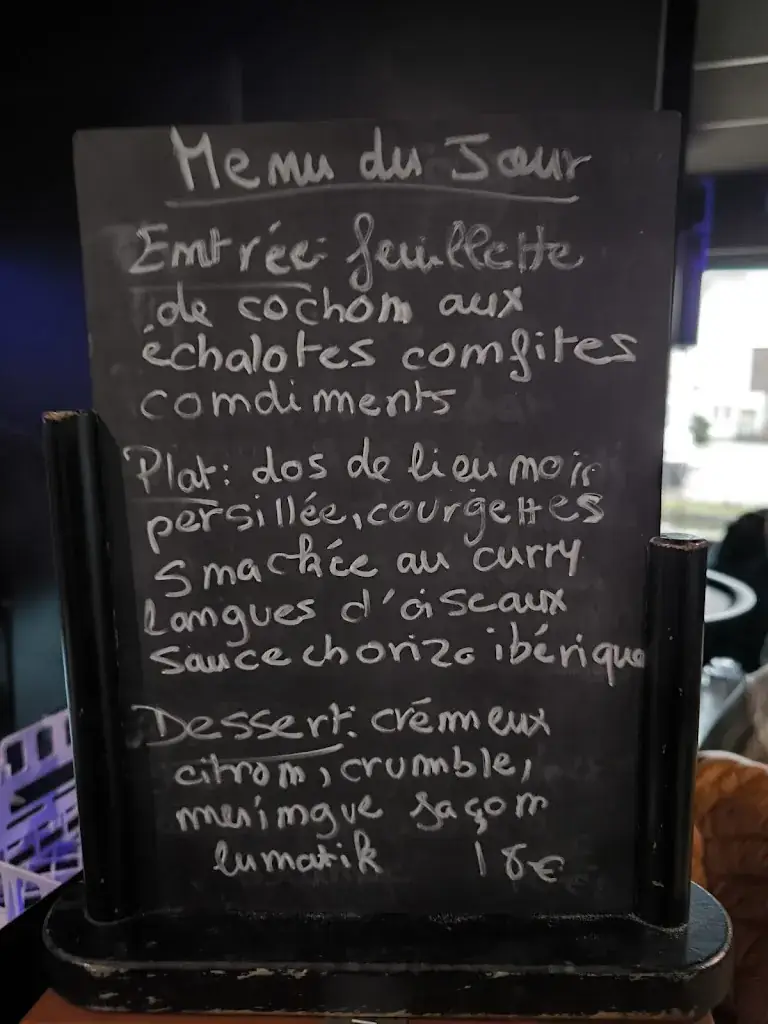 Menu du Jour
Entrée: feuillette
de cochon aux
échalotes confites
condiments
Plat: dos de lieu noir
persillée, courgettes
smackée au curry
langues d'oiseaux
sauce chorizo ibérique
Dessert: crémeux
citron, crumble,
meringue façon
lunatik 18€